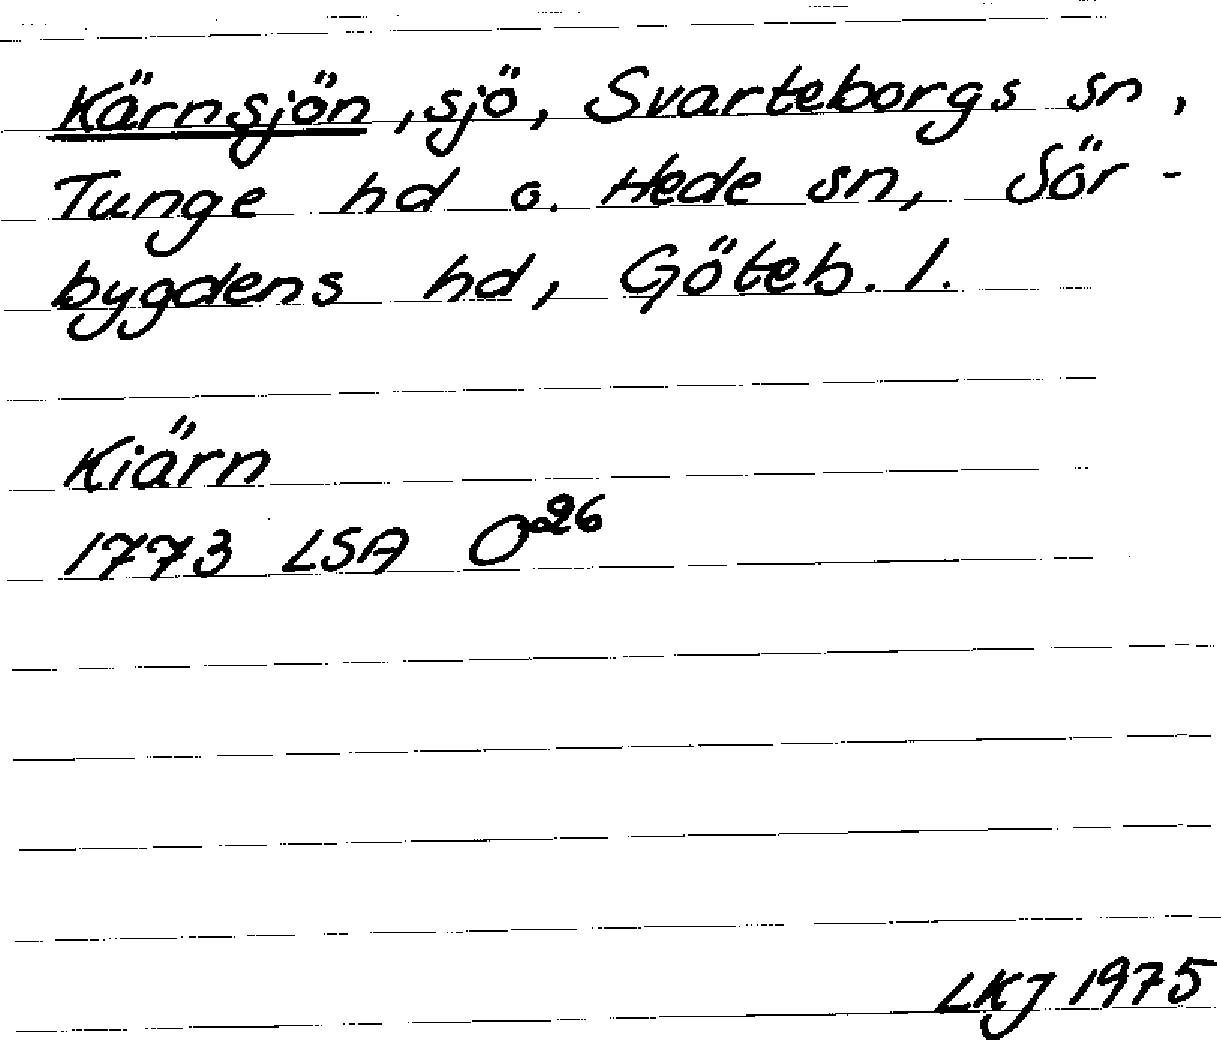 Kärnsjön, sjö, Svarteborgs sn,
Tunge hd o. Hede sn, Sör-
bygdens hd, Göteb. l.
Kiärn
1773 LSA O26
LKJ 1975